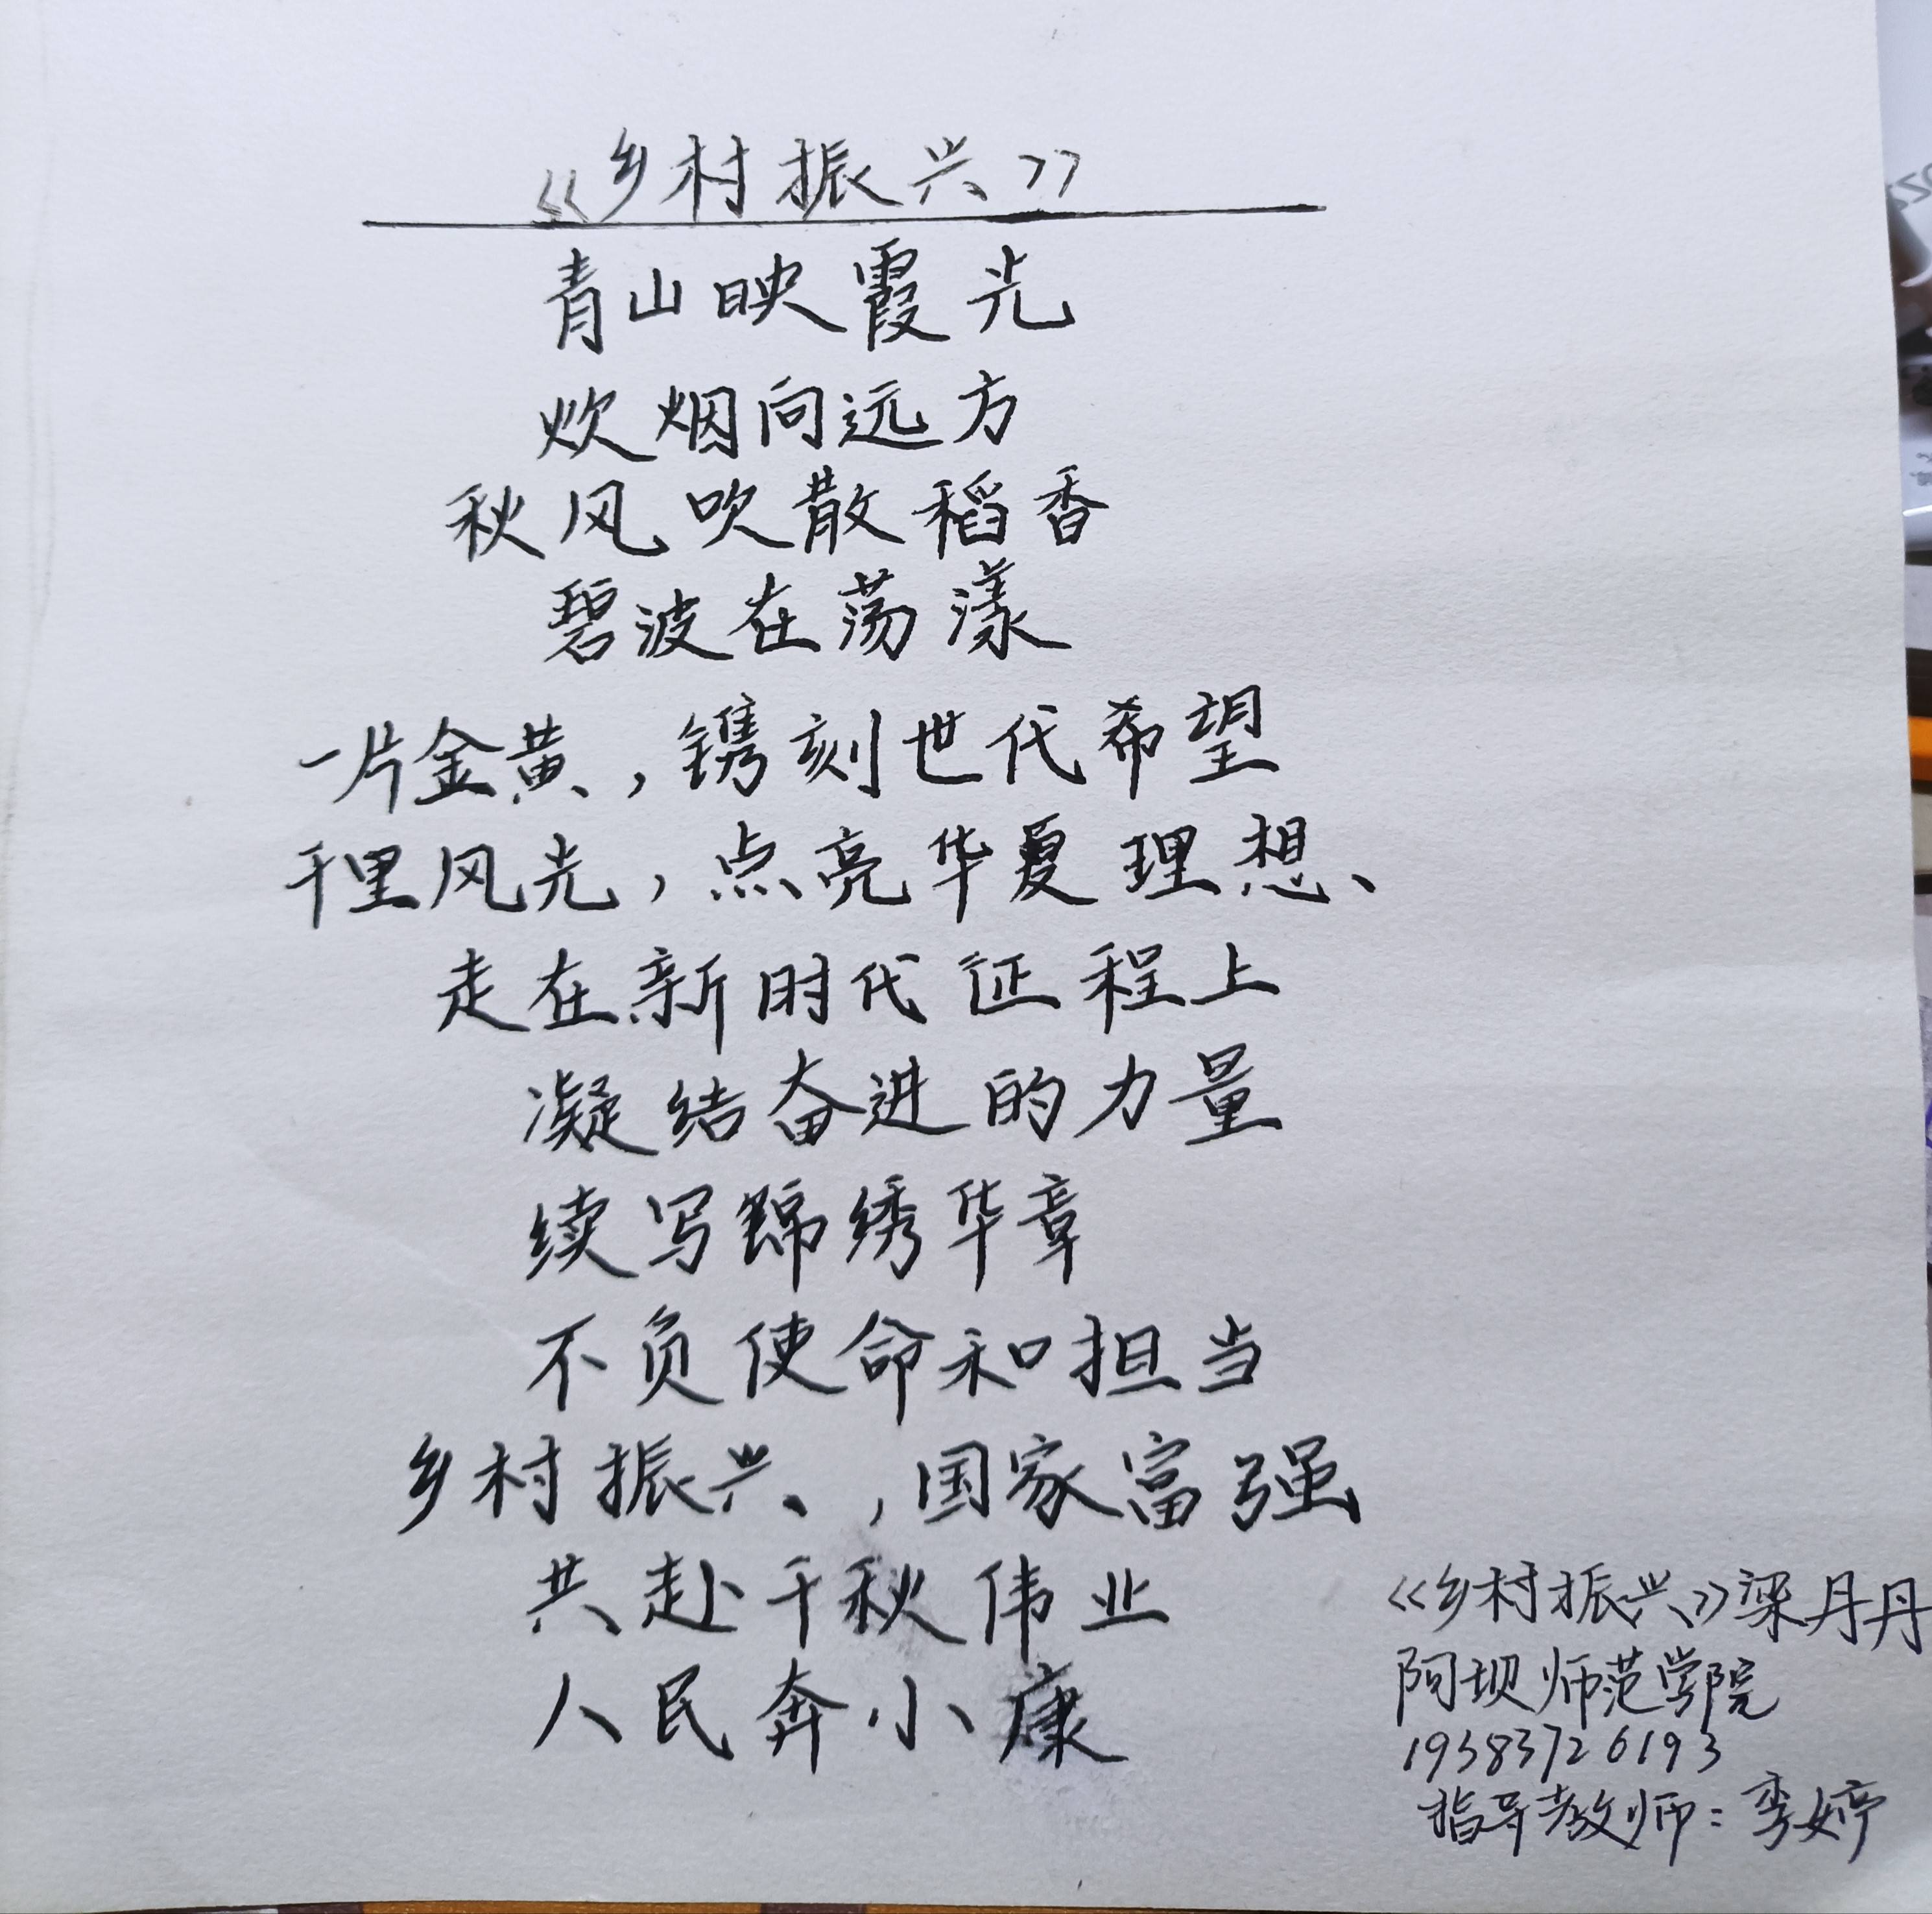 《乡村振兴》
青山映霞光
炊烟向远方
秋风吹散稻香
碧波在荡漾
一片金黄，镌刻世代希望
千里风光，点亮华夏理想、
走在新时代征程上
凝结奋进的力量
续写锦绣华章
不负使命和担当
乡村振兴，国家富强
共赴千秋伟业
人民奔小康
《乡村振兴》梁丹丹
阿坝师范学院
19383726193
指导教师：李婷